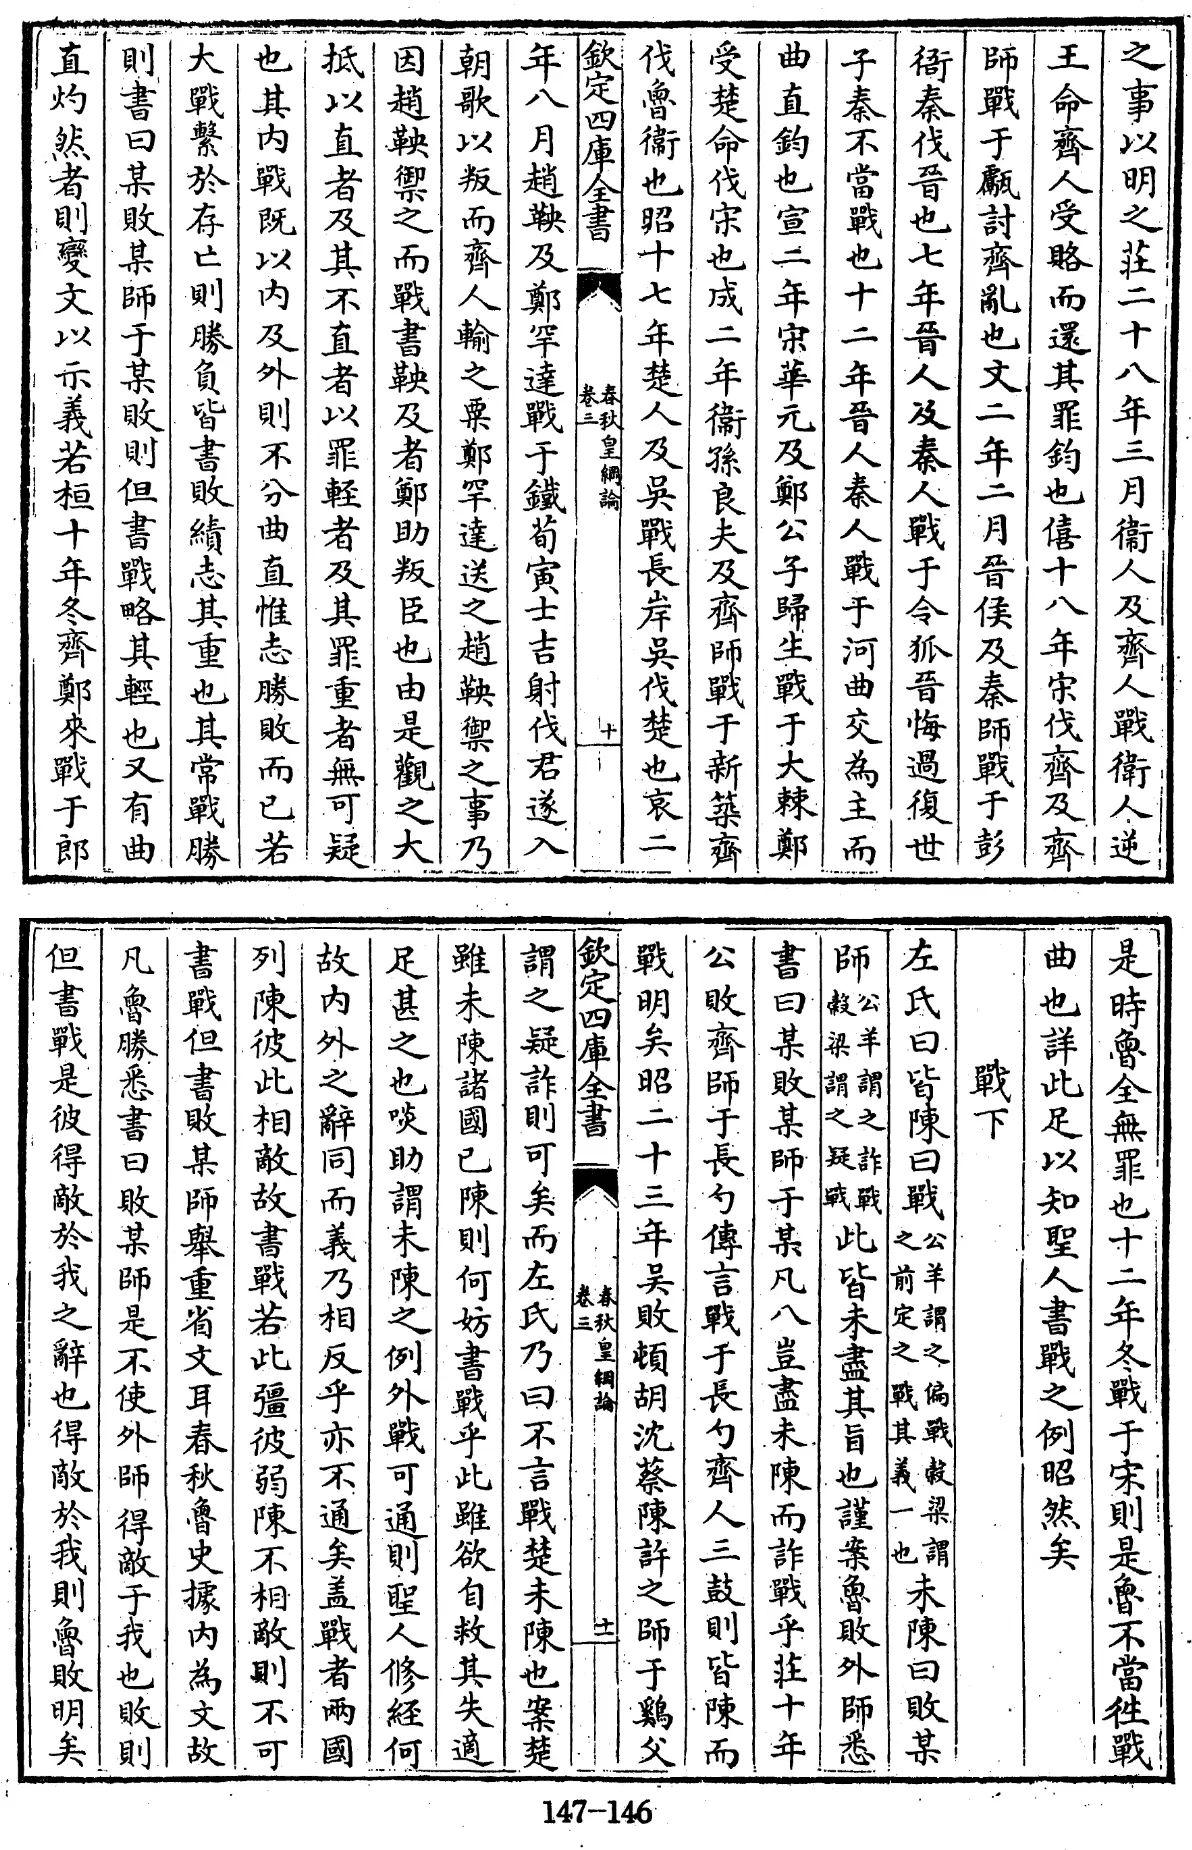 之事以明之莊二十八年三月衛人及齊人戰衛人逆
王命齊人受賂而還其罪鈞也僖十八年宋伐齊及齊
師戰于甗討齊亂也文二年二月晉侯及秦師戰于彭
衙秦伐晉也七年晉人及秦人戰于令狐晉悔過復世
子秦不當戰也十二年晉人秦人戰于河曲交為主而
曲直鈞也宣二年宋華元及鄭公子歸生戰于大棘鄭
受楚命伐宋也成二年衞孫良夫及齊師戰于新築齊
伐魯衞也昭十七年楚人及吳戰長岸吳伐楚也哀二
欽定四庫全書
春秋皇綱論
卷三
十
年八月趙鞅及鄭罕達戰于鐵荀寅士吉射伐君遂入
朝歌以叛而齊人輸之粟鄭罕達送之趙鞅禦之事乃
因趙鞅禦之而戰書鞅及者鄭助叛臣也由是觀之大
抵以直者及其不直者以罪輕者及其罪重者無可疑
也其内戰既以内及外則不分曲直惟志勝敗而已若
大戰繫於存亡則勝負皆書敗績志其重也其常戰勝
則書曰某敗某師于某敗則但書戰略其輕也又有曲
直灼然者則變文以示義若桓十年冬齊鄭來戰于郎
是時魯全無罪也十二年冬戰于宋則是魯不當徃戰
曲也詳此足以知聖人書戰之例昭然矣
戰下
左氏曰皆陳曰戰公羊謂之偏戰榖梁謂之前定之戰其義一也未陳曰敗某
師公羊謂之詐戰榖梁謂之疑戰此皆未盡其旨也謹案魯敗外師悉
書曰某敗某師于某凡八豈盡未陳而詐戰乎莊十年
公敗齊師于長勺傳言戰于長勺齊人三鼓則皆陳而
戰明矣昭二十三年吳敗頓胡沈蔡陳許之師于鷄父
欽定四庫全書
春秋皇綱論
卷三
十一
謂之疑詐則可矣而左氏乃曰不言戰楚未陳也案楚
雖未陳諸國已陳則何妨書戰乎此雖欲自救其失適
足甚之也啖助謂未陳之例外戰可通則聖人修經何
故内外之辭同而義乃相反乎亦不通矣盖戰者兩國
列陳彼此相敵故書戰若此彊彼弱陳不相敵則不可
書戰但書敗某師舉重省文耳春秋魯史據内為文故
凡魯勝悉書曰敗某師是不使外師得敵于我也敗則
但書戰是彼得敵於我之辭也得敵於我則魯敗明矣
147-146